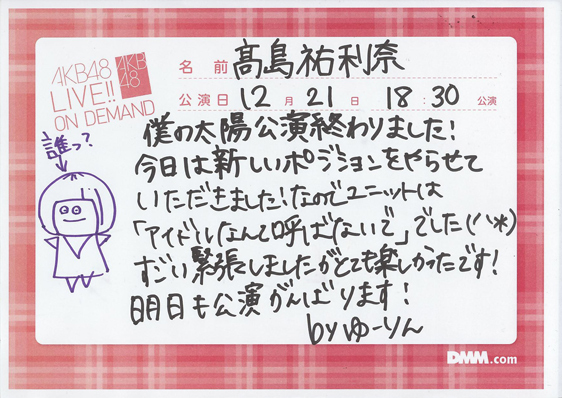 AKB48
LIVE!!
ON DEMAND
AKB
48
名前 髙島祐利奈
公演日 12月21日 18:30公演
誰っ?
僕の太陽公演終わりました!
今日は新しいポジションをやらせて
いただきました!なのでユニットは
「アイドルなんて呼ばないで」でした(^^*)
すごい緊張しましたがとても楽しかったです!
明日も公演がんばります!
byゆーりん
DMM.com